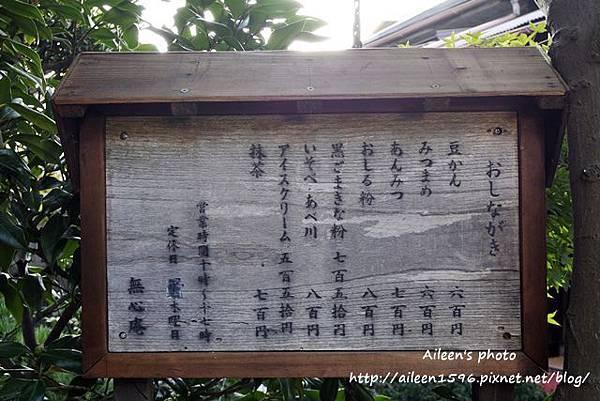 おしながき
豆かん 六百円
みつまめ 六百円
あんみつ 七百円
おしる粉 八百円
黒ごまきな粉 七百五拾円
いそべ・あべ川 八百円
アイスクリーム 五百五拾円
抹茶 七百円
営業時間 十時〜十七時
定休日 木曜日
無心庵
Aileen's photo
http://aileen1596.pixnet.net/blog/